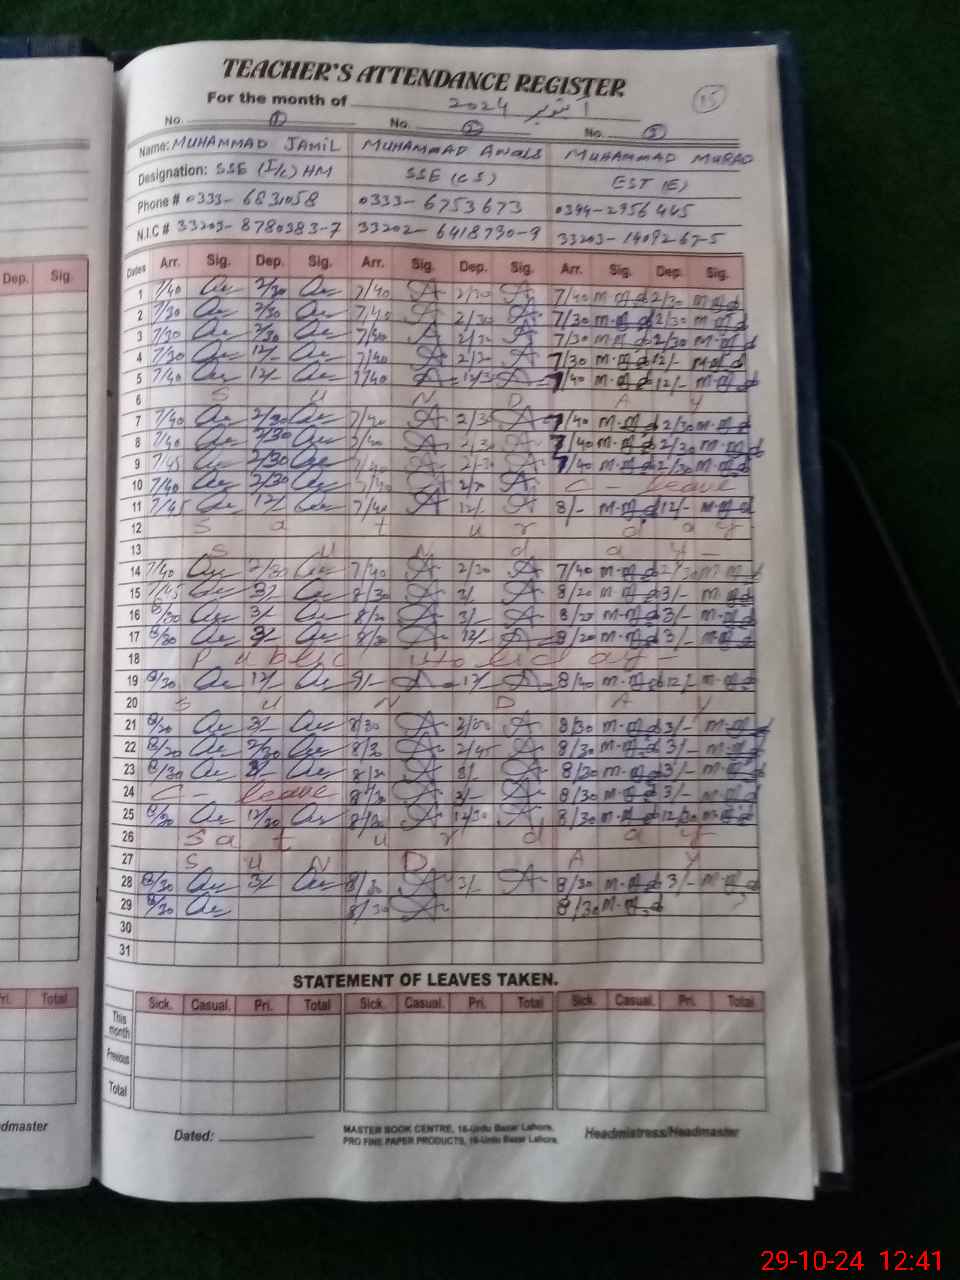 TEACHER'S ATTENDANCE REGISTER
For the month of اکتوبر 2024
15
No. 1 No. 2 No. 3
Name: MUHAMMAD JAMIL MUHAMMAD AWAIS MUHAMMAD MURAD
Designation: SSE (I/c) HM SSE (CS) EST (E)
Phone # 0333-6831058 0333-6753673 0344-2956445
N.I.C # 33203-8780383-7 33202-6418730-9 33203-1409267-5
Dep. Sig.
Dates Arr. Sig. Dep. Sig. Arr. Sig. Dep. Sig. Arr. Sig. Dep. Sig.
1 7/40 2/30 7/40 2/30 7/40 2/30
2 7/30 2/30 7/40 2/30 7/30 2/30
3 7/30 2/30 7/40 2/30 7/30 2/30
4 7/30 12/- 7/40 7/30 12/-
5 7/40 12/- 7/40 12/30 7/40 12/-
6 S U N D A Y
7 7/40 2/30 7/40 2/30 7/40 2/30
8 7/40 2/30 7/40 2/30
9 7/45 2/30 7/40 2/30 7/40 2/30
10 7/40 2/30 C - leave
11 7/45 12/- 7/40 12/- 8/- 12/-
12 S a t u r d a y
13 S U N d a y -
14 7/40 2/30 7/40 2/30 7/40 2/30
15 7/45 3/- 8/30 3/- 8/20 3/-
16 8/30 3/- 8/20 3/- 8/20 3/-
17 8/30 3/- 8/20 12/- 8/20 3/-
18 Public Holiday -
19 8/30 12/- 9/- 12/- 8/40 12/-
20 S U N D A Y
21 8/20 3/- 8/30 8/30 3/-
22 8/20 2/30 8/30 2/45 8/30 3/-
23 8/30 3/- 8/20 3/- 8/30 3/-
24 C - leave 8/30 3/- 8/30 3/-
25 8/30 12/30 8/30 12/30 8/30 12/30
26 Sat u r d a y
27 S U N D A Y
28 8/30 3/- 8/30 3/- 8/30 3/-
29 8/30 8/30 8/30
30
31
STATEMENT OF LEAVES TAKEN.
Pri. Total
Sick. Casual. Pri. Total Sick. Casual. Pri. Total Sick. Casual. Pri. Total
This month
Previous
Total
Dated:
MASTER BOOK CENTRE, 16-Urdu Bazar Lahore.
PRO FINE PAPER PRODUCTS, 16-Urdu Bazar Lahore.
Headmistress/Headmaster
29-10-24 12:41